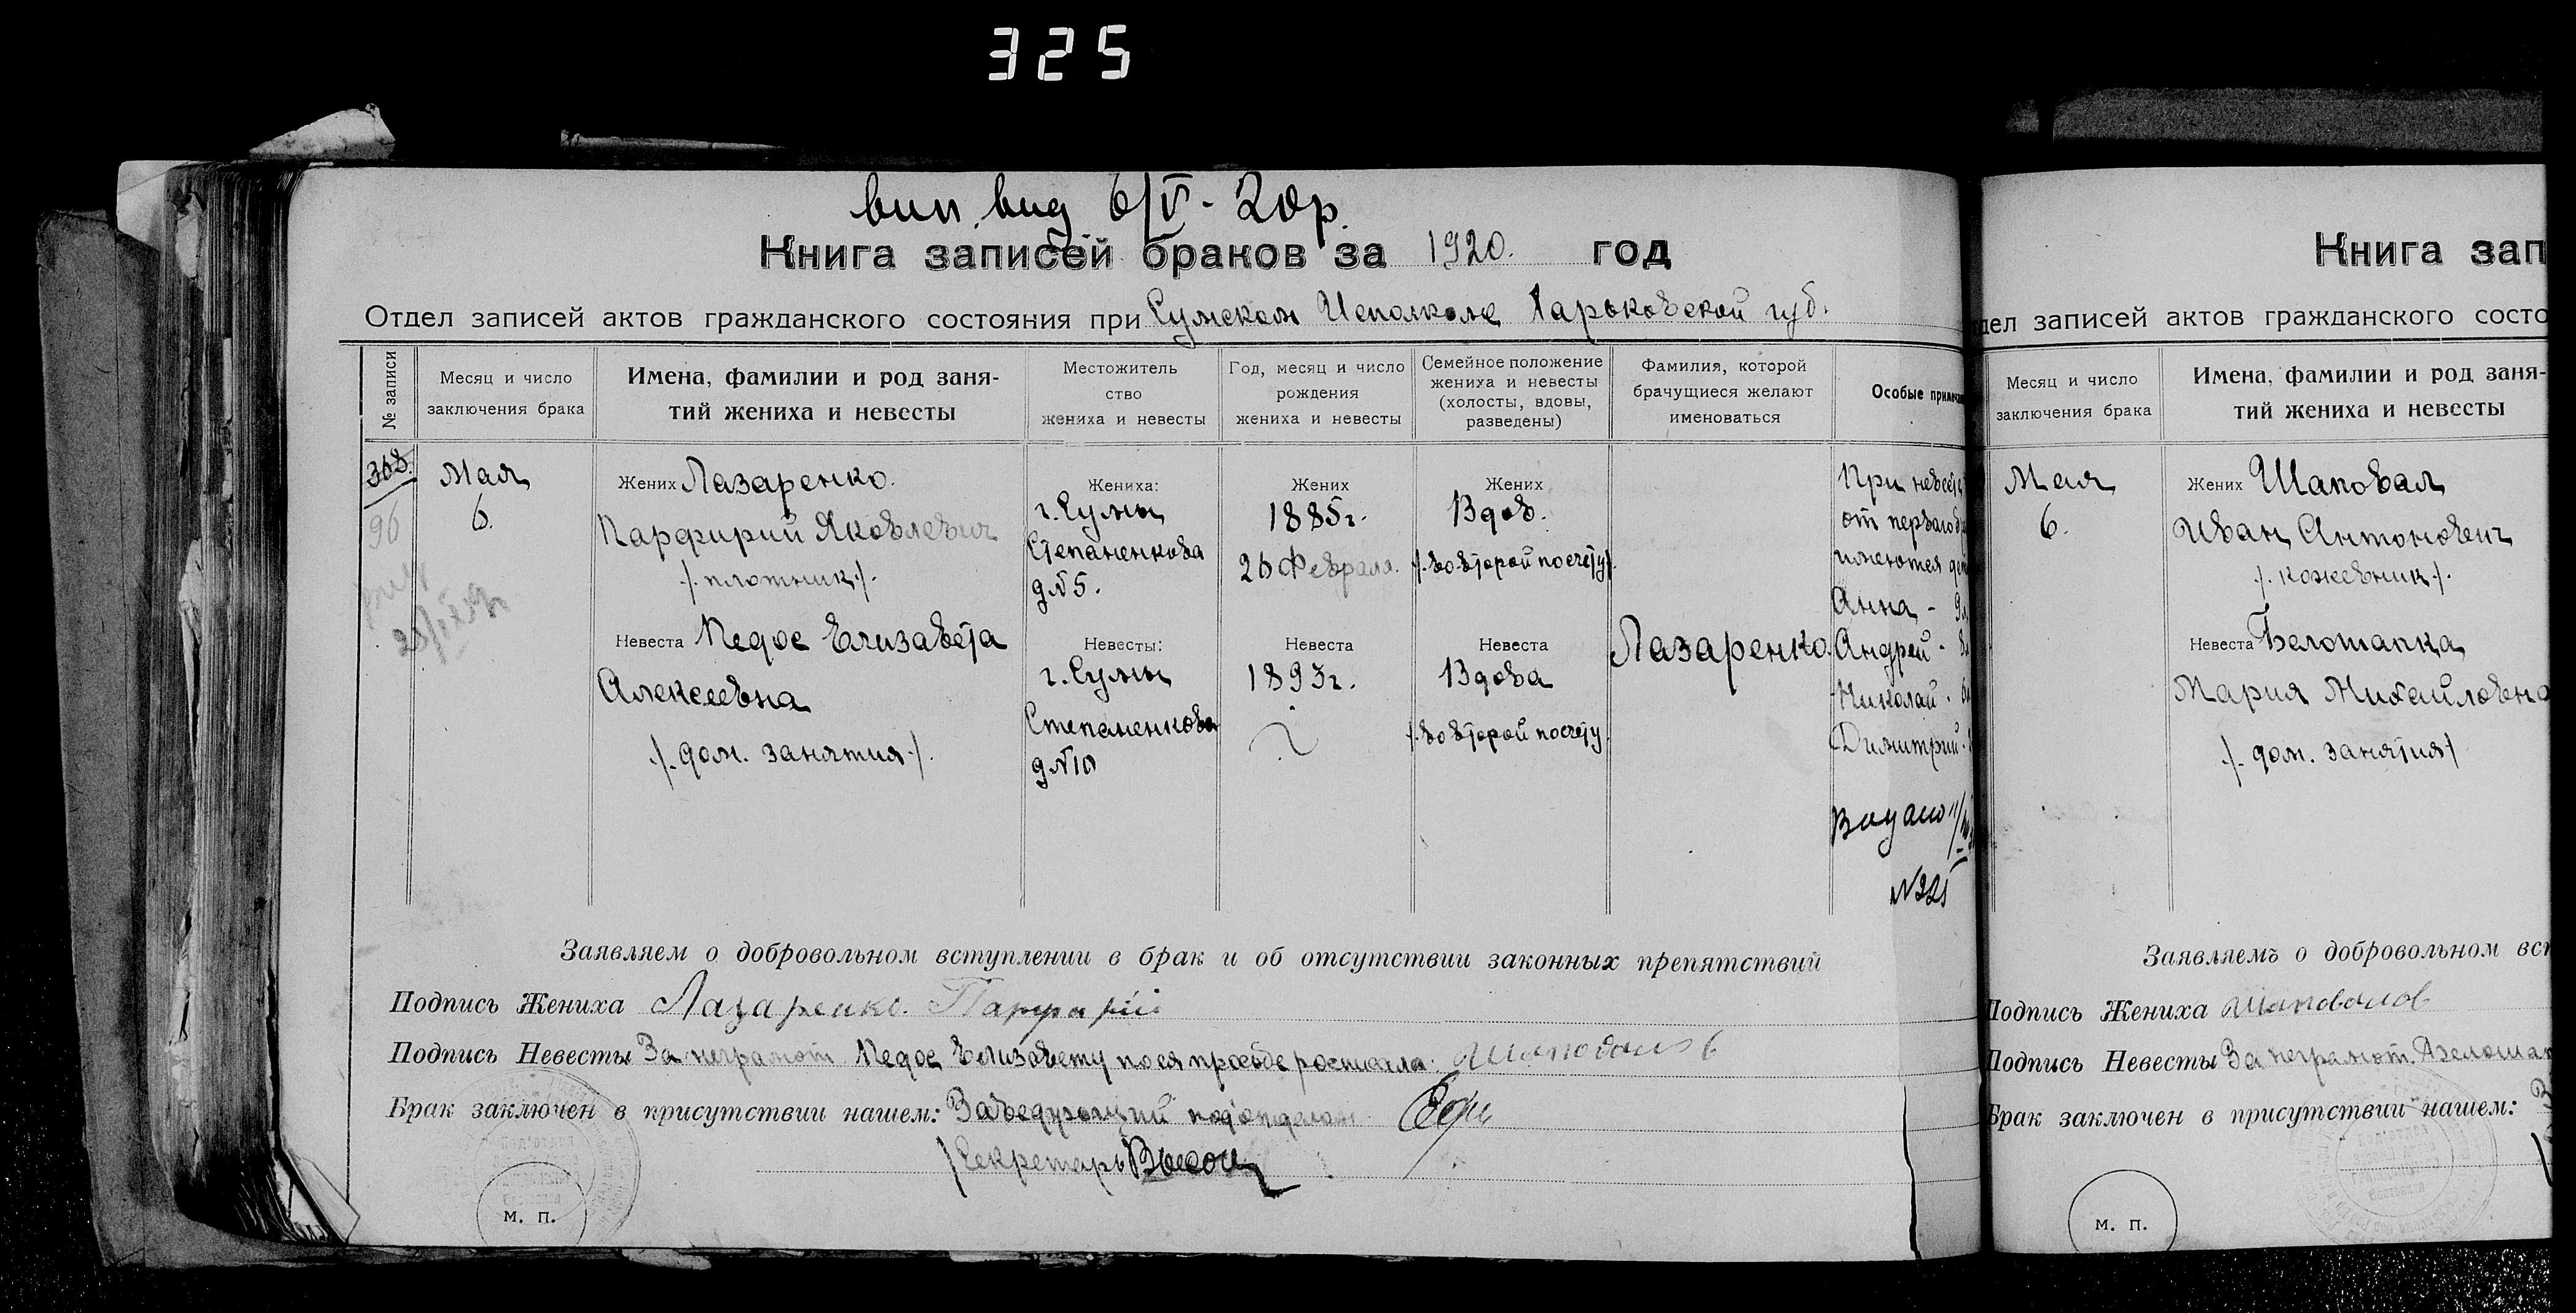 325
вип. вид 6/V - 20р.
Книга записей браков за 1920. год
Отдел записей актов гражданского состояния при Сумском Исполкоме Харьковской губ.
№ записи
Месяц и число
заключения брака
Имена, фамилии и род заня-
тий жениха и невесты
Местожитель
ство
жениха и невесты
Год, месяц и число
рождения
жениха и невесты
Семейное положение
жениха и невесты
(холосты, вдовы,
разведены)
Фамилия, которой
брачущиеся желают
именоваться
Особые примеча
308.
96
Мая
6.
Жених Лазаренко.
Парфирий Яковлевич
/. плотник /.
Невеста Педос Елизавета
Алексеевна
/. дом. занятия /.
Жениха:
г. Сумы
Степаненкова
д № 5.
Невесты:
г. Сумы
Степаненкова
д № 10
Жених
1885 г.
26 Февраля.
Невеста
1893 г.
Жених
Вдов.
/. во второй по счету /.
Невеста
Вдова
/. во второй по счету
Лазаренко.
При невесте
от первого б
имеются де
Анна - 9 л
Андрей - 8
Николай -
Димитрий -
Видано 11/
№ 225
Заявляем о добровольном вступлении в брак и об отсутствии законных препятствий
Подпись Жениха Лазаренко. Парфирій
Подпись Невесты За неграмот. Педос Елизавету по ея прозьбе росписался: Шаповалов
Брак заключен в присутствии нашем: Заведующий под'отделом
/Секретарь
м. п.
Книга зап
дел записей актов гражданского состо
Месяц и число
заключения брака
Имена, фамилии и род заня-
тий жениха и невесты
Мая
6.
Жених Шаповал
Иван Антонович
/. кожевник /.
Невеста Белошапка
Мария Михайловна
/. дом. занятия /
Заявляемъ о добровольном вст
Подпись Жениха Шаповалов
Подпись Невесты За неграмот.
Брак заключен в присутствии нашем:
м. п.